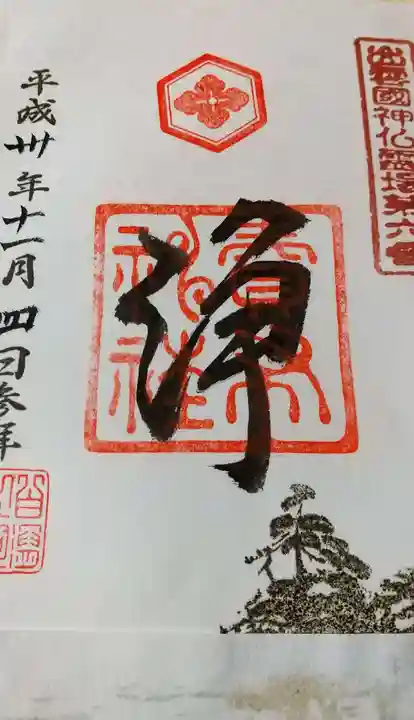 出雲國神仏霊場第六番
賣布
神社
浄
平成卅年十一月四日参拝